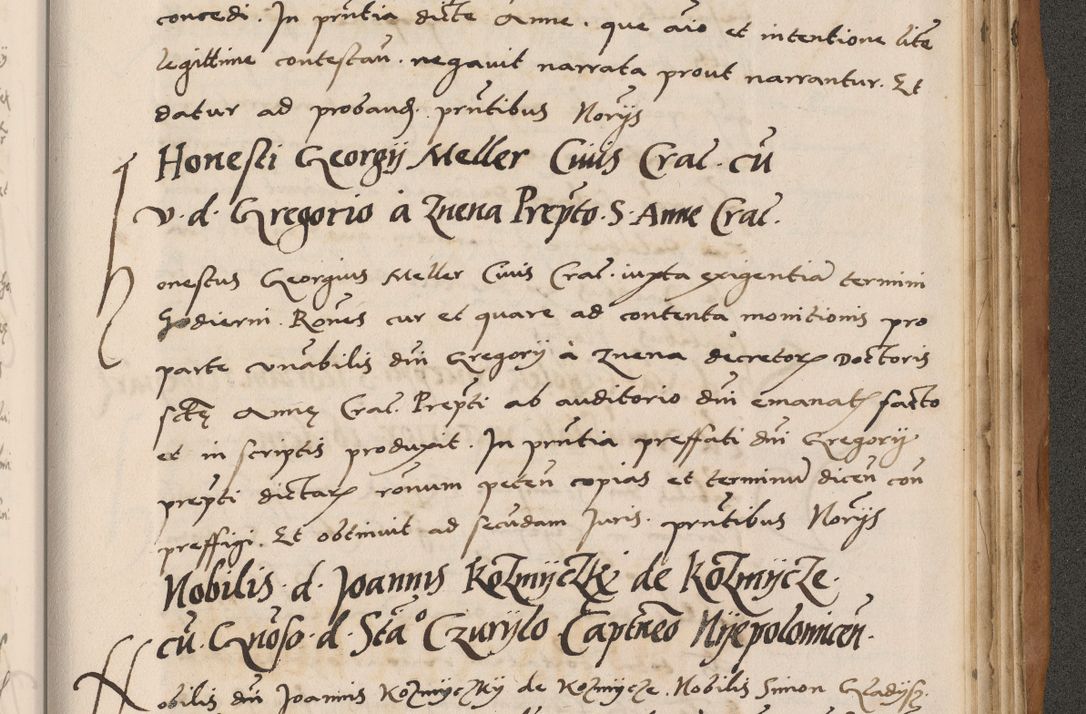 concedi. In pñtia dicte Anne. que aio et intentione lite
legittime contestañ. negavit narrata prout narrantur. Et
datur ad probanđ. pñtibus Norijs
Honesti Georgij Meller Ciuis Crac. cũ
v. d. Gregorio à Znena Prepto. S. Anne Crac.
Honestus Georgius Meller Ciuis Crac. iuxta exigentiã termini
hodierni. Rones cur et quare ad contenta monitionis pro
parte vnabilis dñi Gregorij à Znena decretorꝝ Doctoris
sctę Annę Crac. Prepti ab auditorio dñi emanatꝭ facto
et in scriptis produxit. In pñtia preffati dñi Gregorij
prepti dictarꝝ ronum peteñ copias et terminũ diceñ con
preffigi. Et obtinuit ad secũdam Juris. pñtibus Norijs
Nobilis. d. Joannis Kozmÿczkÿ de Kozmÿcze.
cũ. Gnoso. d. Stão Czurÿlo Captneo Nÿepolomiceñ.
Nobilis dñi Joannis Kozmÿczkÿ de Kozmÿcze. Nobilis Simon Gladÿsz.